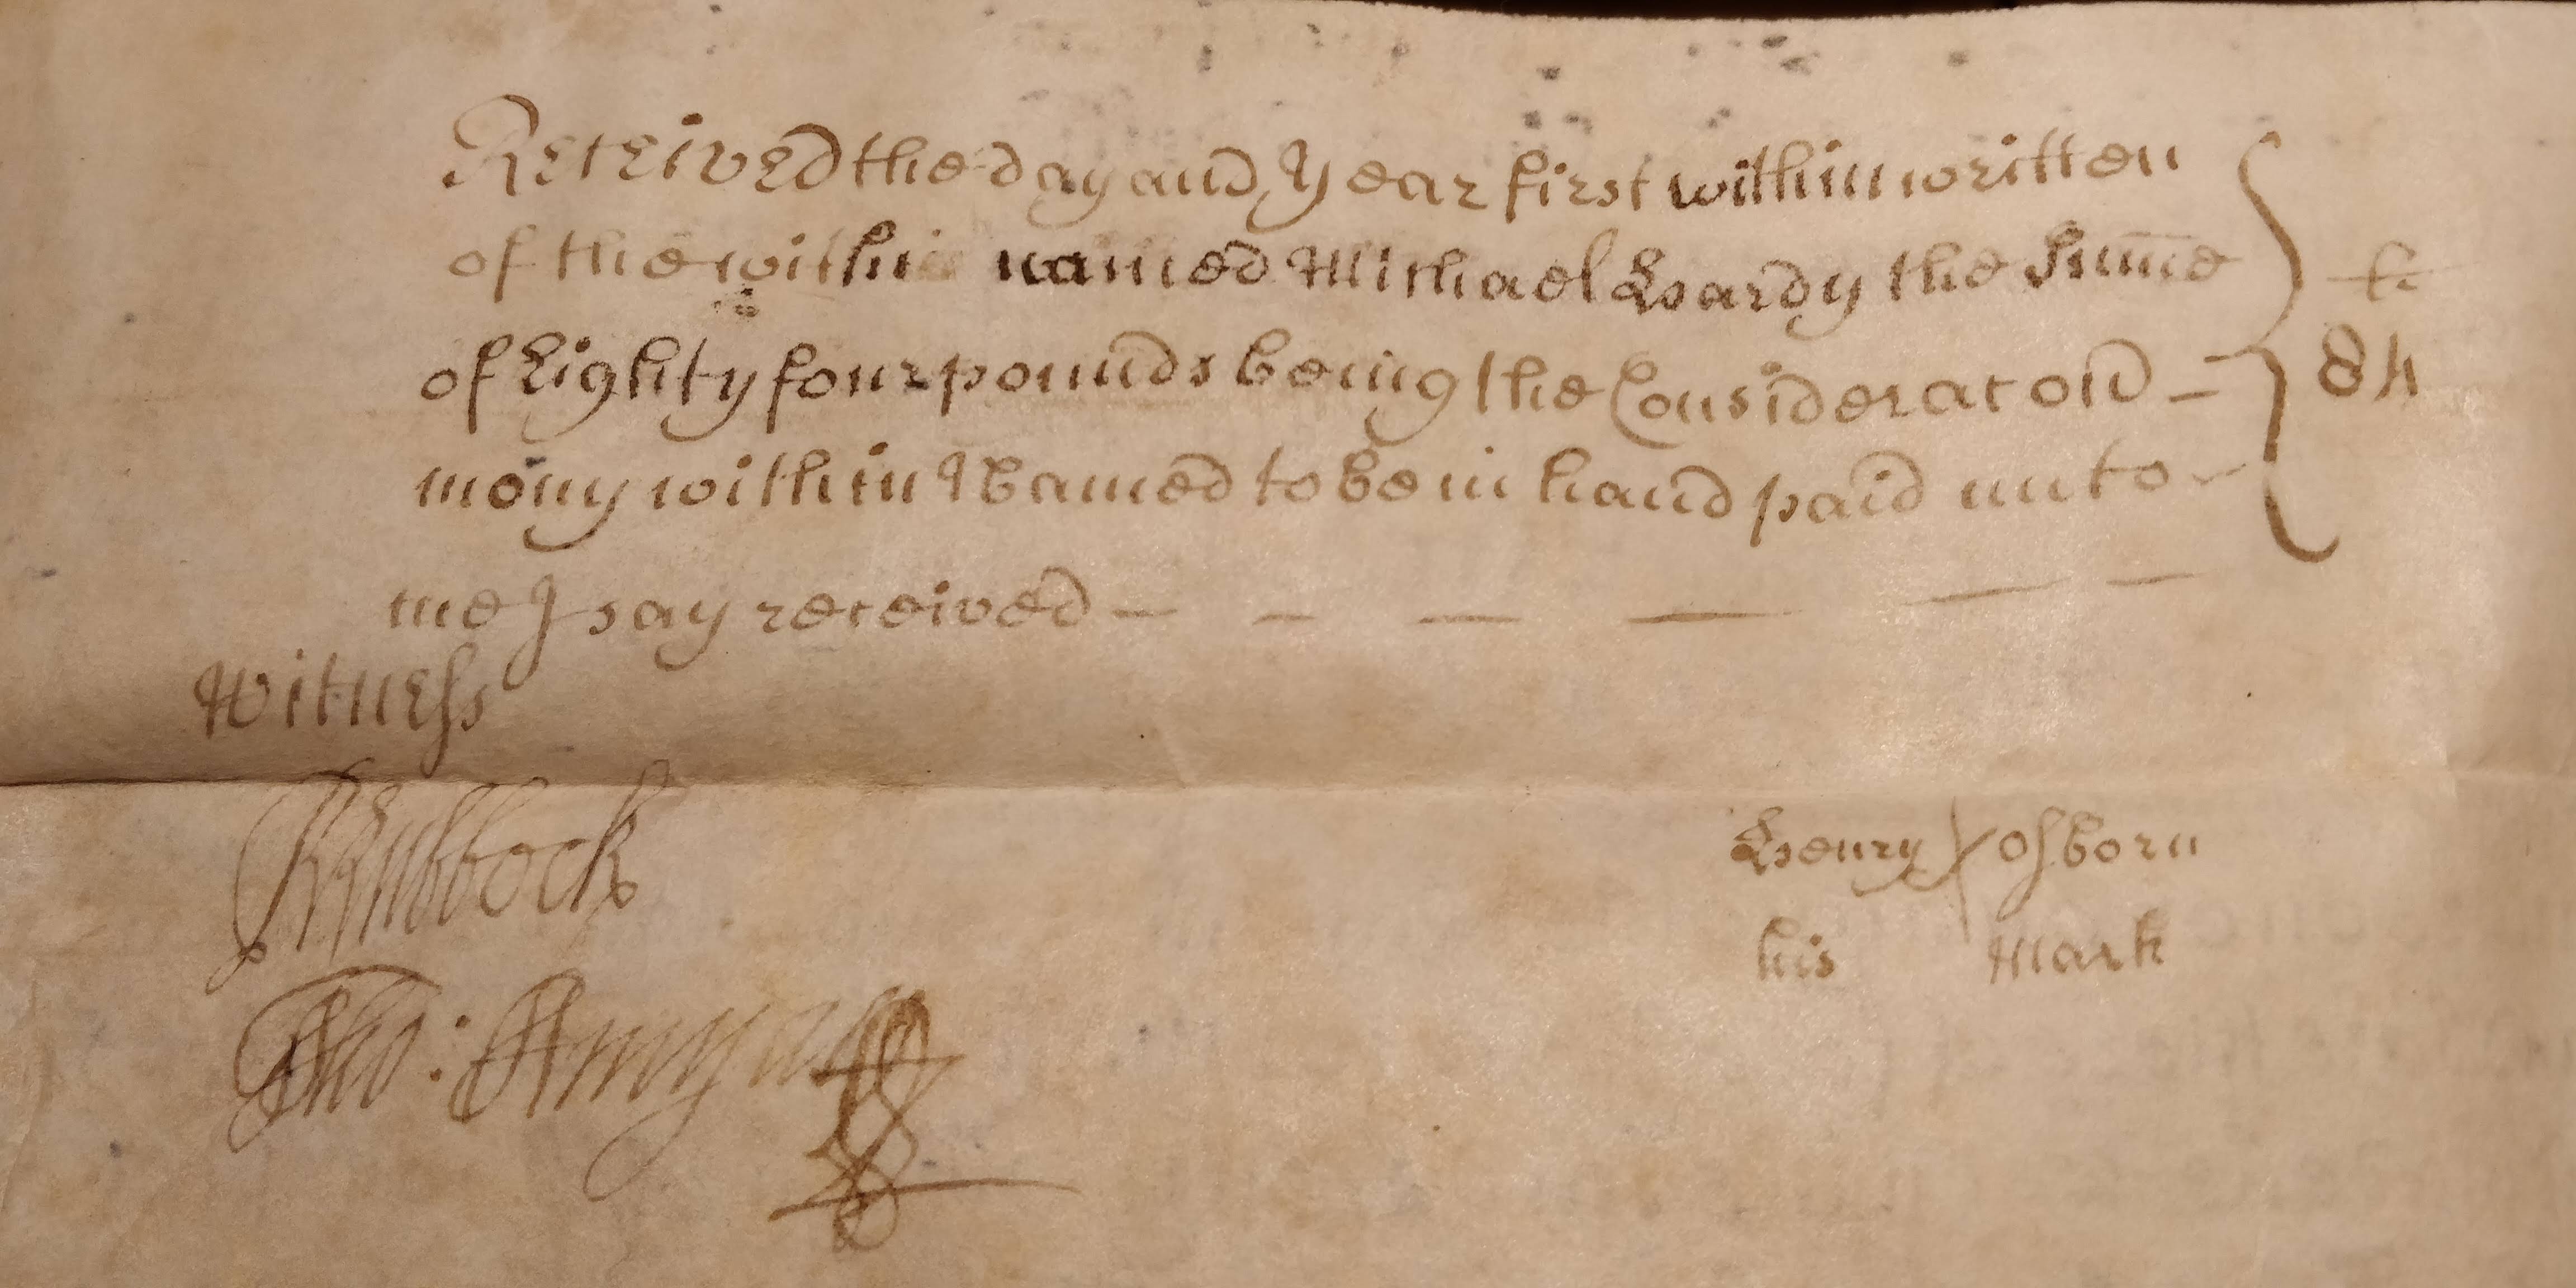 Received the day and Year first within written
of the within named Michael Hardy the Sume
£
of Eighty four pounds being the Consideraton –
84
mony within Named to be in hand paid unto –
me I say received – – – – – –
Witness
Henry X Osborn
his Mark
Tho: Amyas